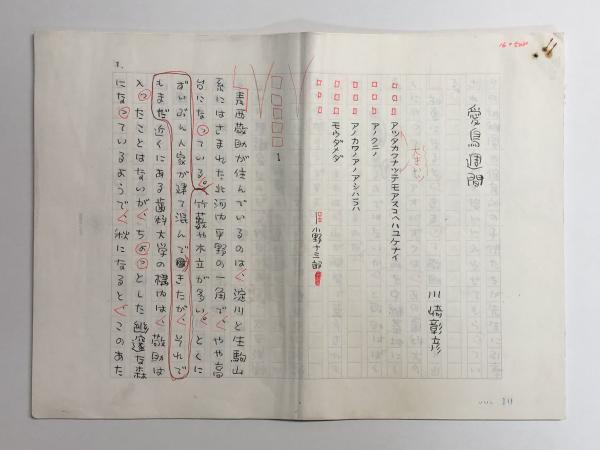 愛鳥週間
川崎彰彦
アツタカクナツテモアスコヘハユケナイ
アノクニノ
アノカワノアノアシハラハ
モウダメダ
小野十三郎
1
青西敬助が住んでいるのは、淀川と生駒山
系にはさまれた北河内平野の一角で、やや高
台になっている。竹藪や木立が多い。とくに
ずいぶん人家が建て混んできたが、それで
もまだ近くにある歯科大学の構内は、敬助は
入ったことはないが、ちょっとした幽邃な森
になっているようで、秋になると、このあた
1.